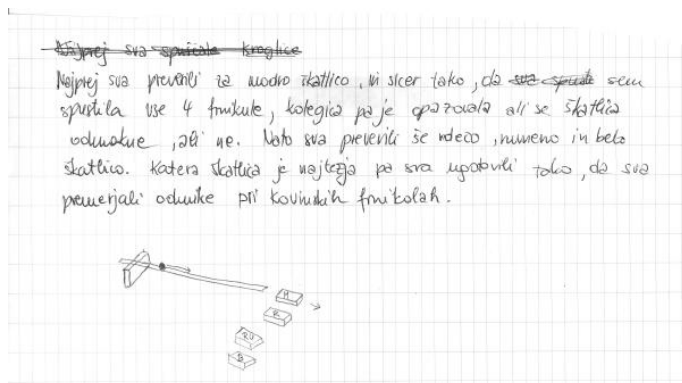 Najprej sva spuščale kroglice
Najprej sva preverili za modro škatlico, in sicer tako, da sva spustile sem
spustila vse 4 frnikule, kolegica pa je opazovala ali se škatlica
odmakne, ali ne. Nato sva preverili še rdečo, rumeno in belo
škatlico. Katera škatlica je najtežja pa sva ugotovili tako, da sva
premerjali odmike pri kovinskih frnikolah.
M
R
RU
B